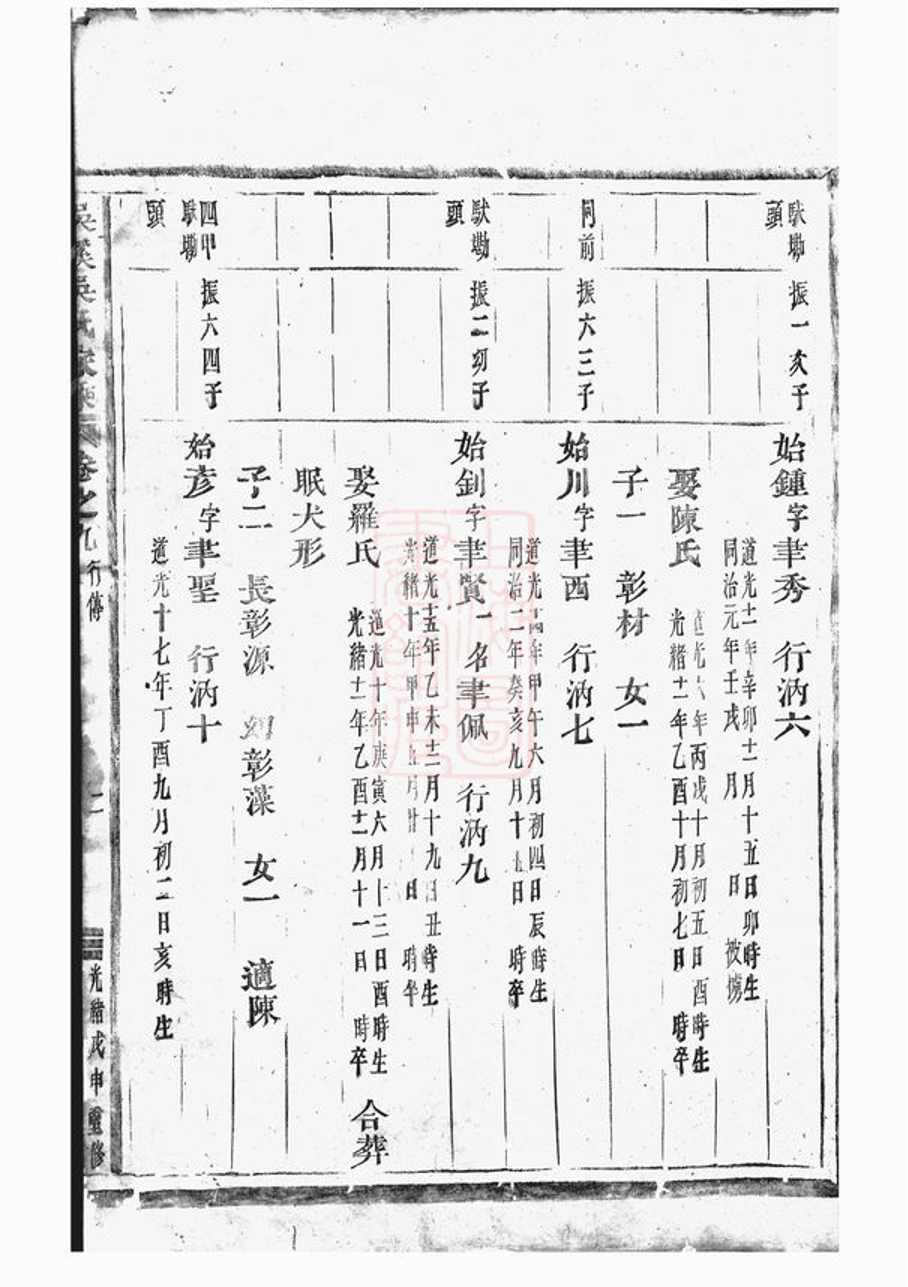 馱塘頭
振一次子
始鍾字聿秀 行汭六
道光十一年辛卯十一月十五日卯時生
同治元年壬戌 月 日 被擄
娶陳氏
道光六年丙戌十月初五日酉時生
光緒十一年乙酉十月初七日 時卒
子一 彰材 女一
同前
振六三子
始川字聿西 行汭七
道光十四年甲午六月初四日辰時生
同治二年癸亥九月十五日 時卒
頭
振二幼子
始釗字聿賢一名聿佩 行汭九
道光十五年乙未十二月十九日丑時生
光緒十年甲申五月廿 日 時卒
娶羅氏
道光十年庚寅六月十三日酉時生
光緒十一年乙酉十二月十一日 時卒
合葬
眠犬形
子二 長彰源 幼彰藻 女一 適陳
四甲 頭
振六四子
始彦字聿聖 行汭十
道光十七年丁酉九月初二日亥時生
吳氏家乘 卷之九 行傳 二 光緒戊申重修